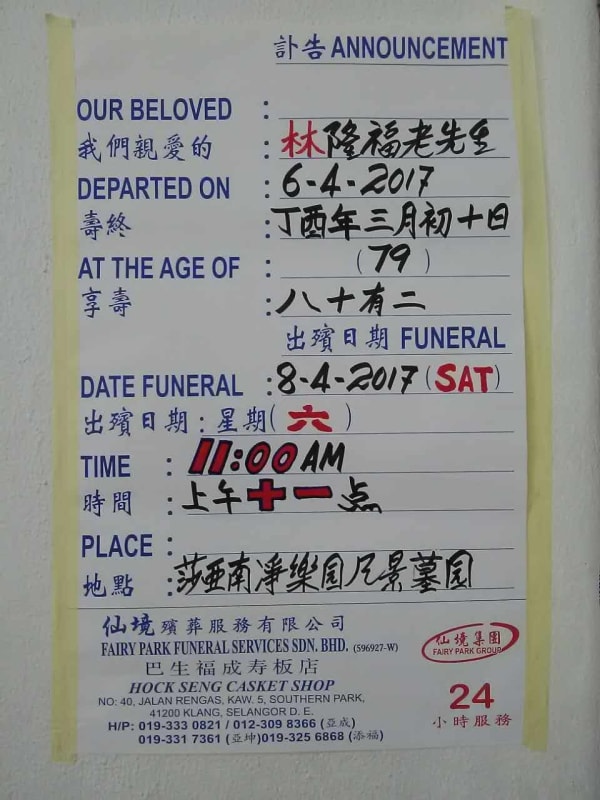 訃告 ANNOUNCEMENT
OUR BELOVED :
我們親愛的 : 林隆福老先生
DEPARTED ON : 6-4-2017
壽終 : 丁酉年三月初十日
AT THE AGE OF : (79)
享壽 : 八十有二
出殯日期 FUNERAL
DATE FUNERAL : 8-4-2017 (SAT)
出殯日期 : 星期(六)
TIME : 11:00 AM
時間 : 上午十一点
PLACE :
地點 : 莎亜南淨樂园风景墓园
仙境殯葬服務有限公司
FAIRY PARK FUNERAL SERVICES SDN. BHD. (596927-W)
仙境集團
FAIRY PARK GROUP
巴生福成寿板店
HOCK SENG CASKET SHOP
NO: 40, JALAN RENGAS, KAW. 5, SOUTHERN PARK,
41200 KLANG, SELANGOR D. E.
H/P: 019-333 0821 / 012-309 8366 (亞成)
019-331 7361 (亞坤) 019-325 6868 (添福)
24
小時服務